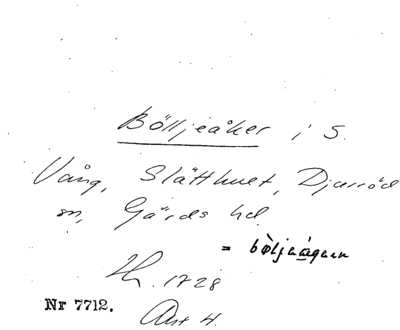 Bölljeåker i S.
Vång, Slätthult, Djurröd
sn, Gärds hd.
= böljaågarn
1728
Nr 7712.
Avs 4.